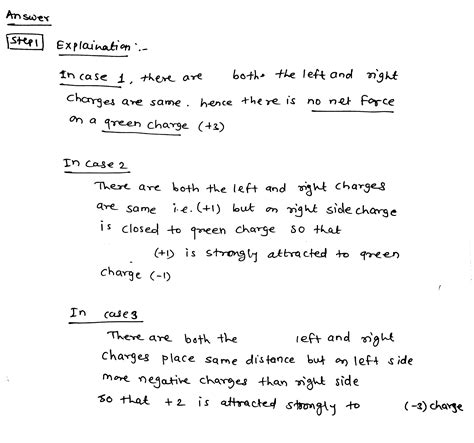 Answer
Step1 Explaination :-
In case 1, there are both. the left and right
Charges are same. hence there is no net force
on a green charge (+3)
In case 2
There are both the left and right charges
are same i.e. (+1) but on right side charge
is closed to green charge so that
(+1) is strongly attracted to green
charge (-1)
In case3
There are both the left and right
charges place same distance but on left side
more negative charges than right side
so that +2 is attracted strongly to (-3) charge